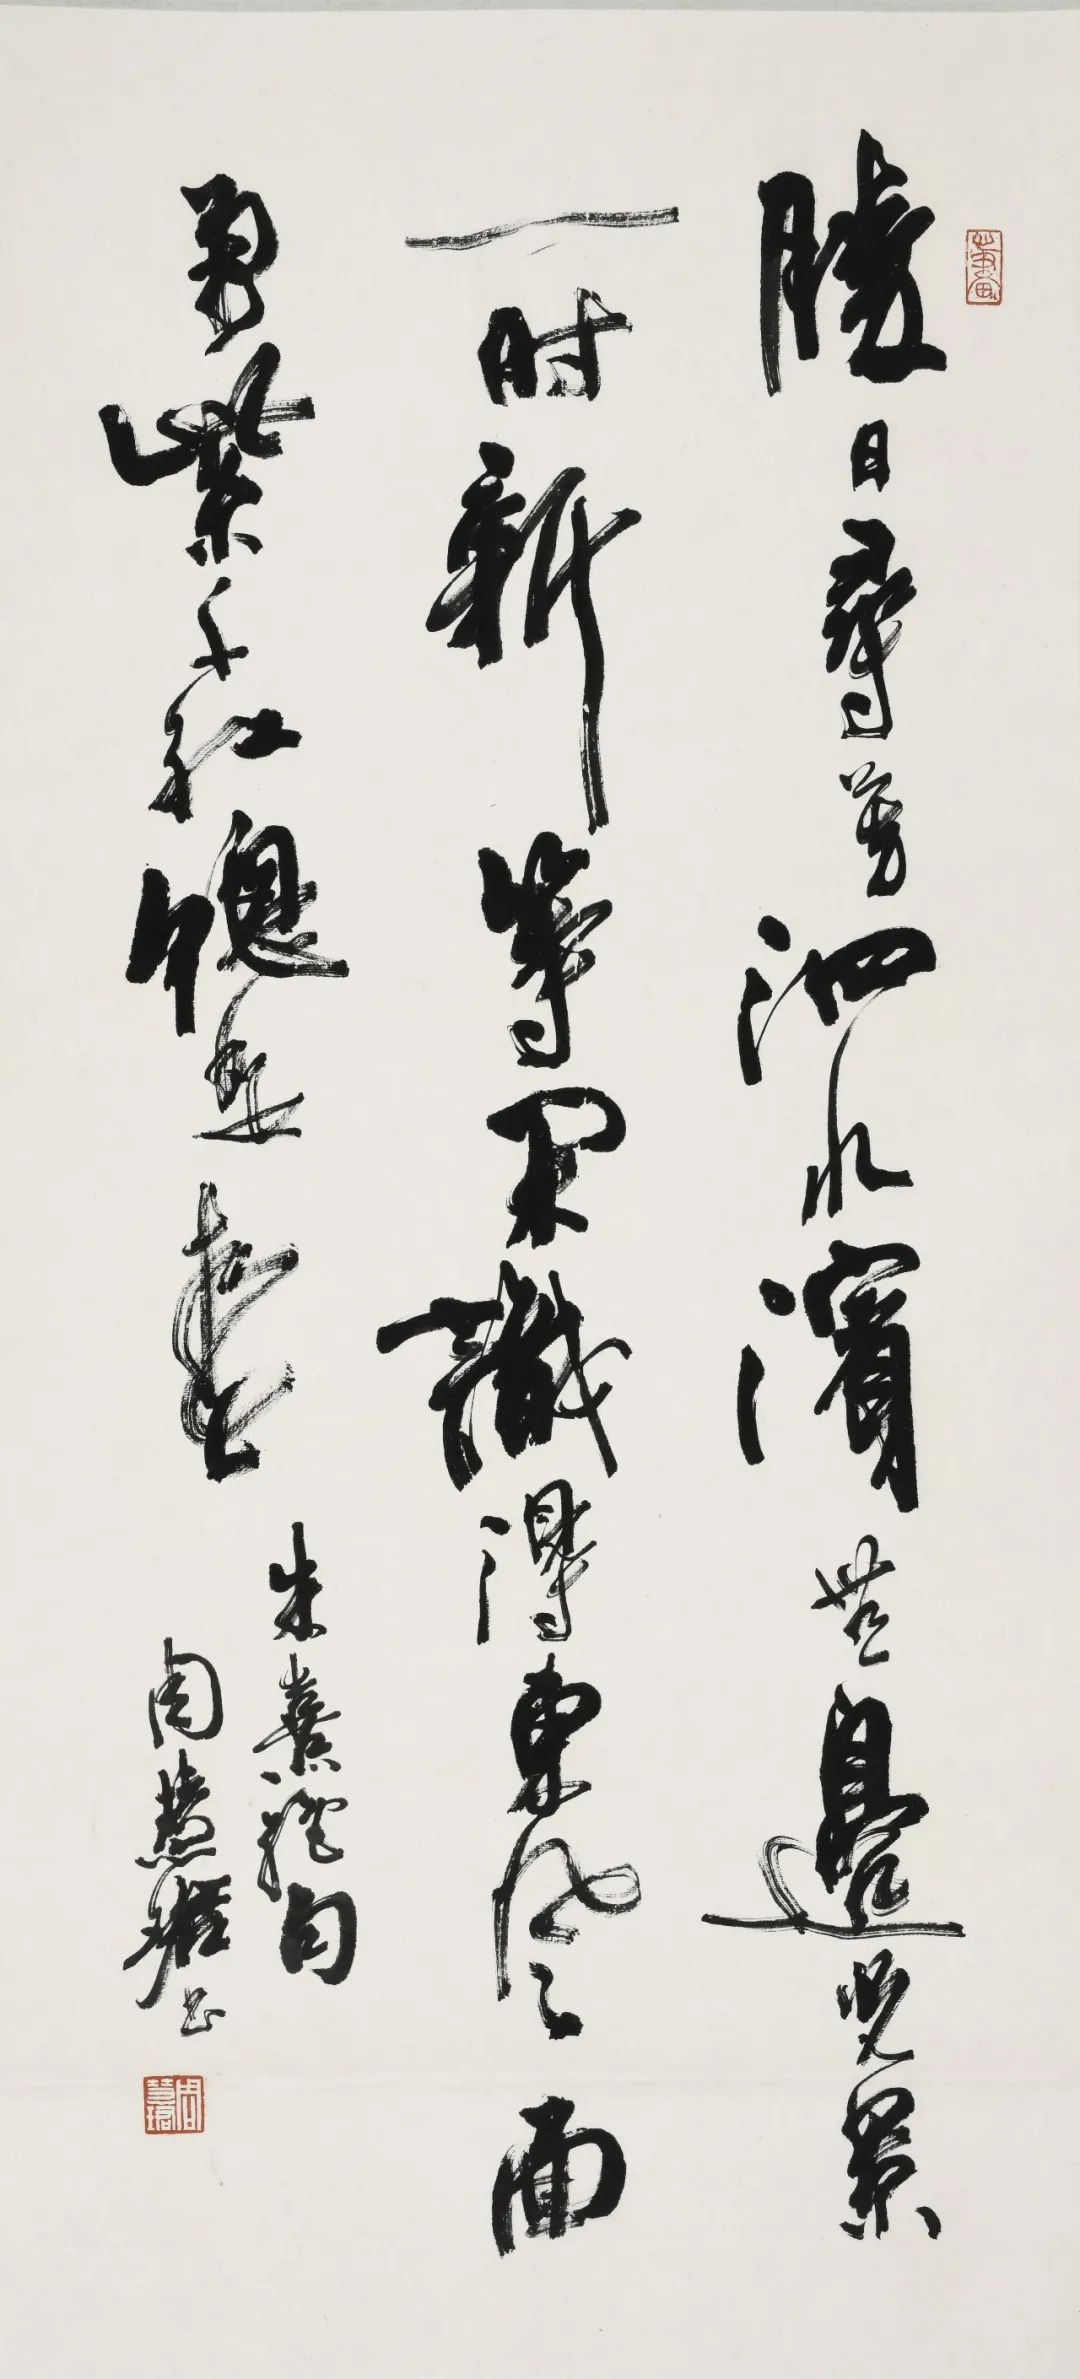 勝日尋芳泗水濱無邊光景
一时新等閑識得東風面
萬紫千紅總是春
朱熹詩句
周慧珺书
心畫
周慧珺